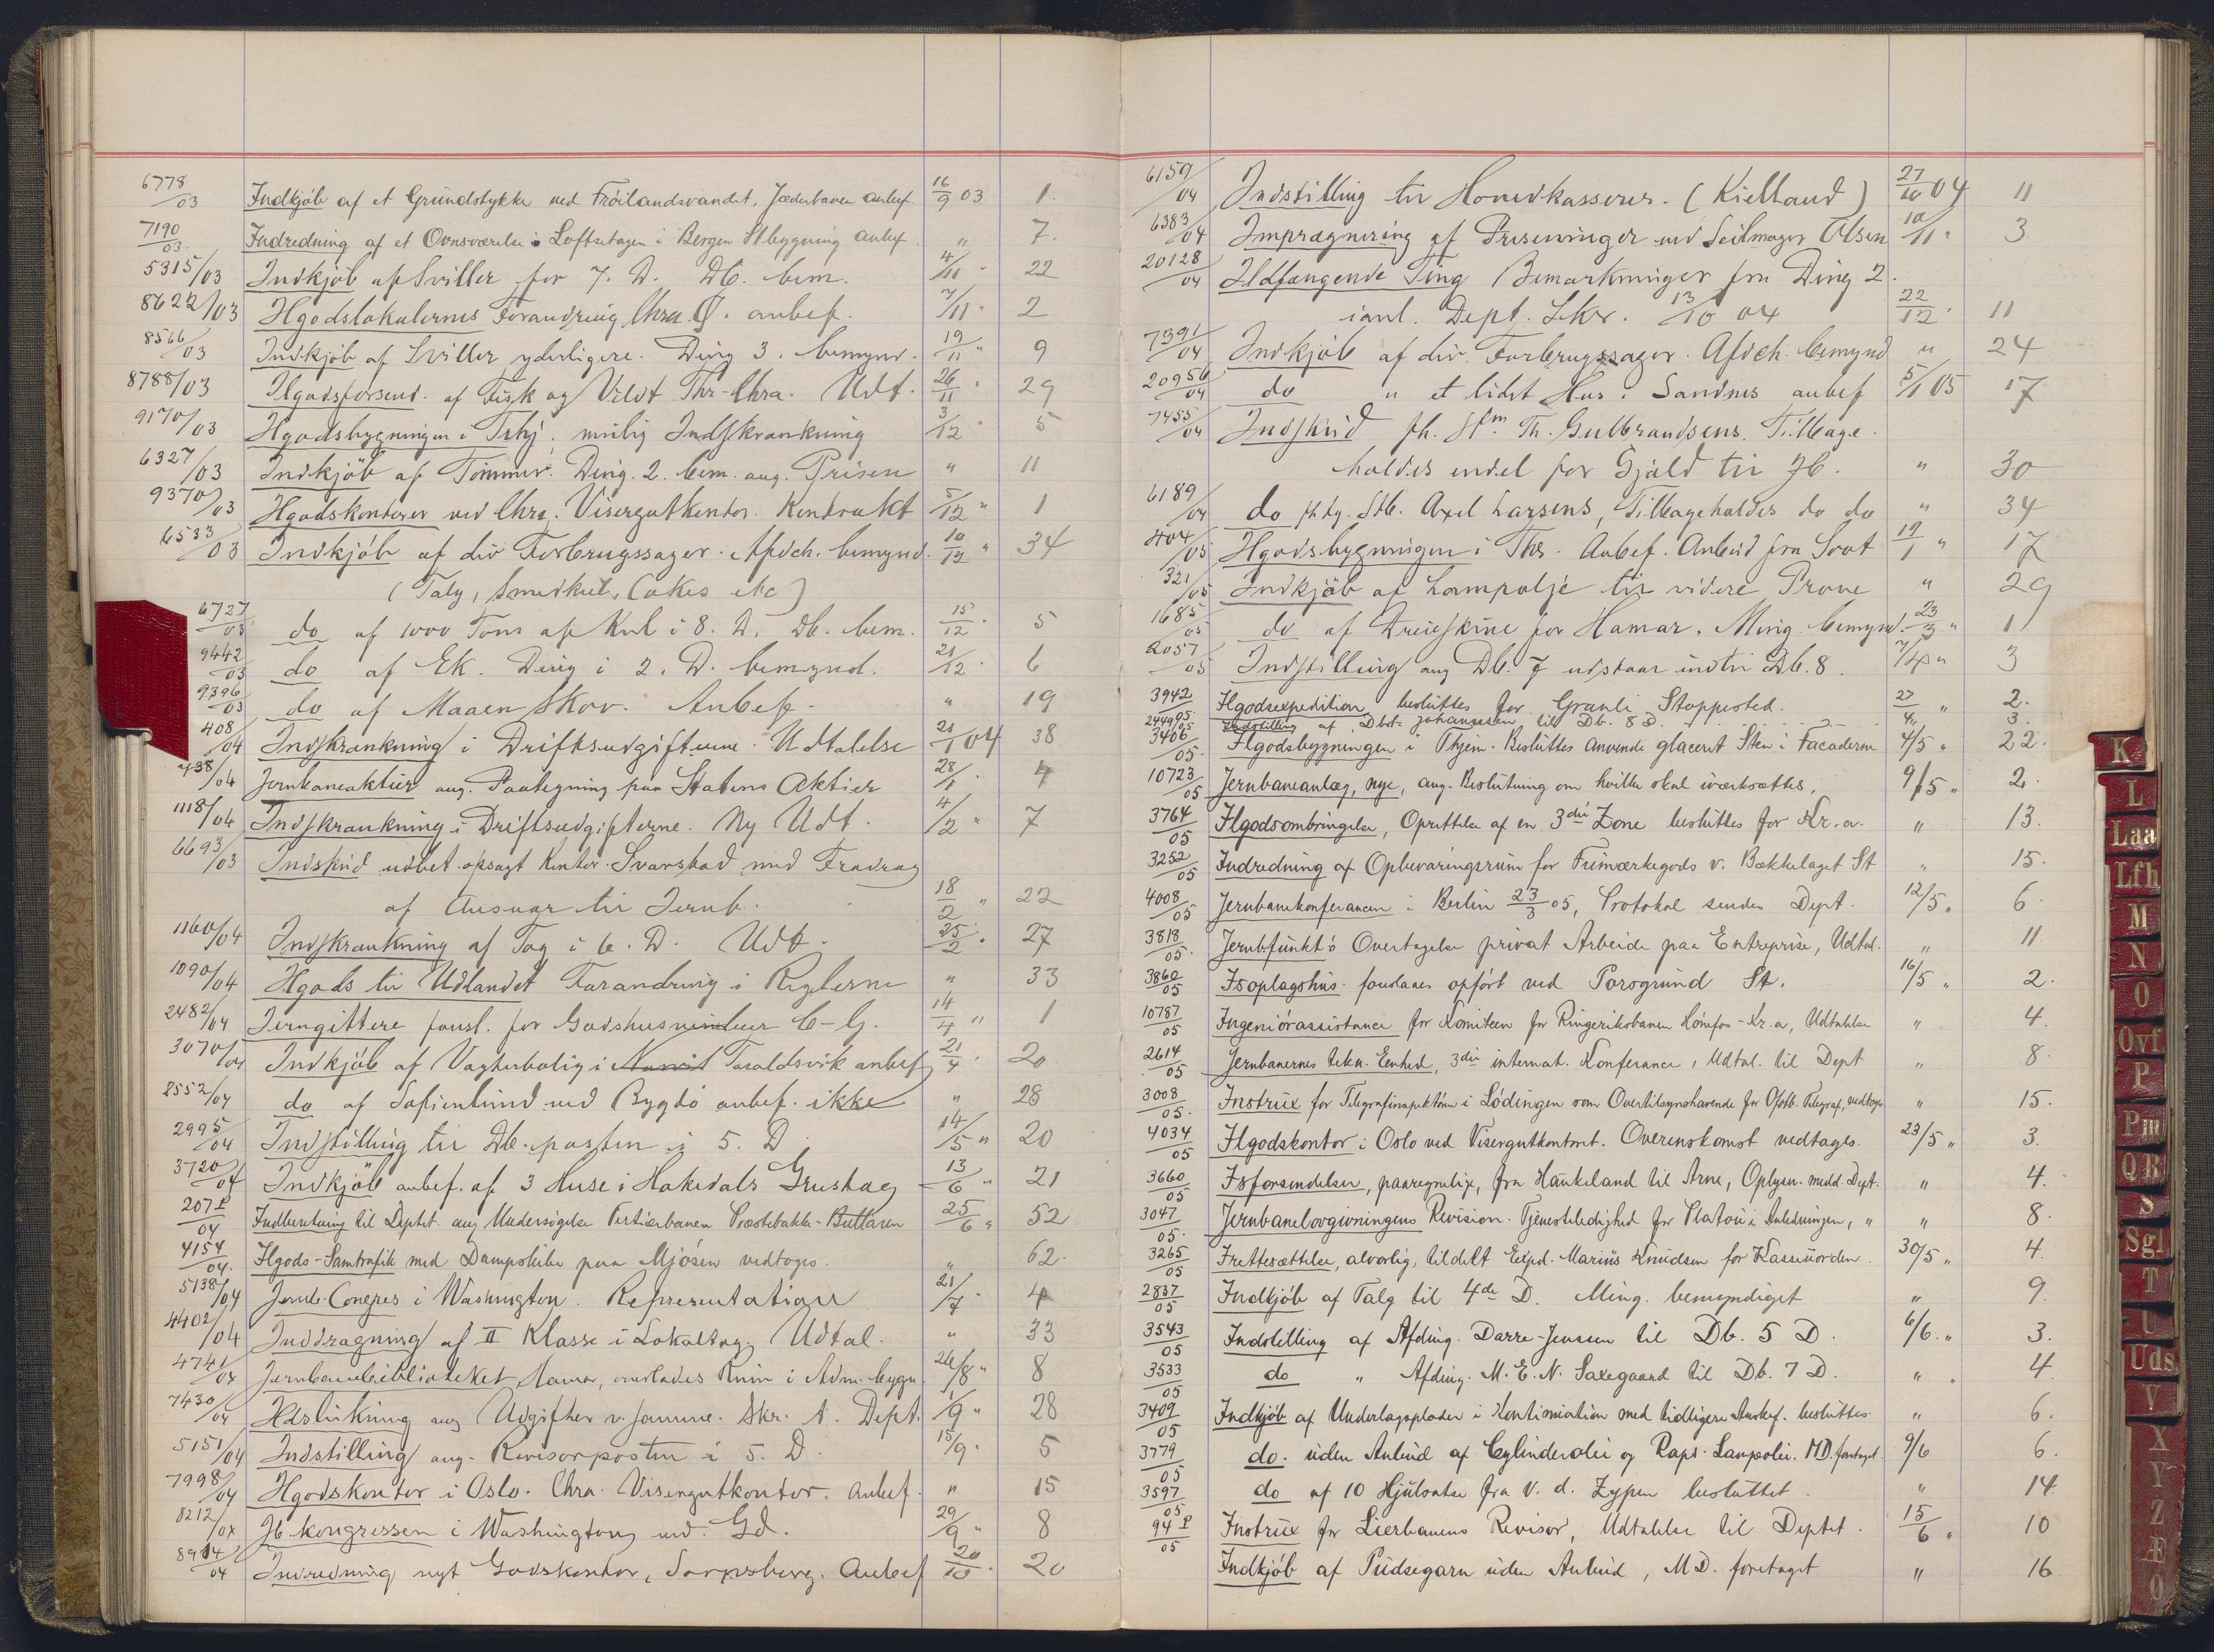 6778/03 Indkjøb af et Grundstykke ved Fröilandsvandet, Jæderbanen anbef. 16/9 03 1.
7190/03. Indredning af et Ovnsværelse i Loftsetagen i Bergen Stbygning anbef. " 7.
5315/03 Indkjøb af Sviller for 7. D. Db. bem. 4/11 " 22
8622/03 Ilgodslokalernes Forandring Chra. Ø. anbef. 7/11 " 2
8566/03 Indkjøb af Sviller yderligere. Ding 3. bemynd. 19/11 " 9
8788/03 Ilgodsforsend. af Fisk og Vildt Thr-Chra. Udt. 26/11 " 29
9170/03 Ilgodsbygningen i Trhj. mulig Indskrænkning 3/12 " 5
6327/03 Indkjöb af Tömmer. Ding. 2. bem. ang. Prisen " 11
9370/03 Ilgodskontorer ved Chra. Visergutkontor. Kontrakt 5/12 " 1
6533/03 Indkjøb af div Forbrugssager. Afdch. bemynd. 10/12 " 34
(Talg, Smedkul, Cokes etc)
6727/03 do af 1000 Tons af Kul i 8. D. Db. bem. 15/12 " 5
9442/03 do af Ek. Ding i 2. D. bemynd. 21/12 " 6
9396/03 do af Maaen Skov. Anbef. " 19
408/04 Indskrænkning i Driftsudgifterne. Udtalelse 21/1 04 38
438/04 Jernbaneaktier ang. Paategning paa Statens Aktier 28/1 " 4
1118/04 Indskrænkning i Driftsudgifterne. Ny Udt. 4/2 " 7
6693/03 Indskud udbet. opsagt Kontor. Svarstad med Fradrag
af Ansvar til Jernb. 18/2 " 22
1160/04 Indskrænkning af Tog i 6. D. Udt. 25/2 " 27
1090/04 Ilgods til Udlandet Forandring i Reglerne " 33
2482/04 Jerngittere forsl. for Godshusvinduer C-G. 14/4 " 1
3070/04 Indkjøb af Vogterbolig i Taraldsvik anbef. 21/4 " 20
2552/04 do af Sofienlund ved Bygdö anbef. ikke " 28
2995/04 Indstilling til Db.-posten i 5. D 14/5 " 20
3720/04 Indkjøb anbef. af 3 Huse i Hakedals Grustag 13/6 " 21
207 P/04 Indberetning til Deptet. ang Undersögelse Tertiærbanen Præstebakke-Bullaren 25/6 " 52
4154/04. Ilgods-Samtrafik med Dampskibe paa Mjösen vedtoges. " 62.
5138/04 Jernb. Congres i Washington. Repræsentation 21/7 " 4
4402/04 Inddragning af II Klasse i Lokaltog. Udtal. " 33
4741/04 Jernbanebiblioteket Hamar, overlades Rum i Adm. bygn. 26/8 " 8
7430/04 Ildslukning ang Udgifter v. samme. Skr. t. Dept. 1/9 " 28
5151/04 Indstilling ang. Revisorposten i 5. D. 15/9 " 5
7998/04 Ilgodskontor i Oslo. Chra. Visergutkontor. anbef. " 15
8212/04 Jb. kongressen i Washington ved Gd. 29/9 " 8
8914/04 Indredning nyt Godskontor, Sarpsborg. Anbef 20/10 " 20
6159/04 Indstilling til Hovedkasserer. (Kielland) 27/10 04 11
6383/04 Imprægnering af Presenninger ved Seilmager Olsen 10/11 " 3
20128/04 Ildfangende Ting Bemærkninger fra Ding 2.
ianl. Dept. Skr. 13/10 04 22/12 " 11
7391/04 Indkjøb af div. Forbrugssager. Afdch. bemynd " 24
20956/04 do " et lidet Hus i Sandnes anbef 5/1 05 17
7455/04 Indskud fh. Stm. Th. Gulbrandsens. Tilbage-
holdes endel for Gjæld til Jb. " 30
6189/04 do fh tg. Stb. Axel Larsens, Tilbageholdes do do " 34
404/05 Ilgodsbygningen i Thr. Anbef. Anbud fra Svot 19/1 " 17
321/05 Indkjøb af Lampolje til videre Prøve " 29
1685/05 do af Dreieskive for Hamar. Ming bemynd. 23/3 " 1
2057/05 Indstilling ang Db. 7 udstaar indtil Db. 8. 7/4 " 3
3942/05 Ilgodsexpedition besluttes for Granli Stoppested. 27/4 " 2.
2449/05 Indstilling af Dbst. Johannesen til Db. 8 D. 3.
3406/05. Ilgodsbygningen i Thjem. Besluttes anvende glaceret Sten i Facaderne 4/5 " 22.
10723/05 Jernbaneanlæg, nye, ang. Beslutning om hvilke skal iværksættes. 9/5 " 2.
3764/05 Ilgodsombringelse, Oprettelse af en 3die Zone besluttes for Kr.a. " 13.
3252/05 Indredning af Opbevaringsrum for Frimærkegods v. Bækkelaget St " 15.
4008/05 Jernbanekonferancen i Berlin 23/3 05, Protokol sendes Dept. 12/5 " 6.
3818/05. Jernb.funkt's Overtagelse privat Arbeide paa Entreprise, Udtal. " 11
3860/05 Isoplagshus foreslaaes opført ved Porsgrund St. 16/5 " 2.
10787/05 Ingeniörassistance for Komiteen for Ringeriksbanen Hönefos-Kr.a, Udtalelse " 4.
2614/05 Jernbanernes tekn. Eenhed, 3die internat. Konferance, Udtal. til Dept " 8.
3008/05. Instrux for Telegrafinspektören i Lödingen som Overtilsynshavende for Ofotb. Telegraf, vedtoges " 15.
4034/05 Ilgodskontor i Oslo ved Visergutkontoret. Overenskomst vedtages. 23/5 " 3.
3660/05 Isforsendelser, paaregnelige, fra Haukeland til Arne, Oplysn. medd. Dept. " 4.
3047/05. Jernbanelovgivningens Revision. Tjenesteledighed for Platou i Anledningen, " " 8.
3265/05 Irettesættelse, alvorlig, tildelt Expd. Marius Knudsen for Kasseuorden. 30/5 " 4.
2837/05 Indkjøb af Talg til 4de D. Ming. bemyndiget " 9.
3543/05 Indstilling af Afding. Darre-Jenssen til Db. 5 D. 6/6. " 3.
3533/05 do " Afding. M. E. N. Saxegaard til Db. 7 D. " " 4.
3409/05 Indkjøb af Underlagsplader i Kontinuation med tidligere Anskaf. besluttes. " 6.
3779/05 do. uden Anbud af Cylinderolie og Raps-Lampolie. M.D. foretaget. 9/6 6.
3597/05 do af 10 Hjulsatse fra V. d. Zypen besluttet. " 14.
94 P/05 Instrux for Lierbanens Revisor, Udtalelse til Deptet. 15/6 " 10
Indkjøb af Pudsegarn uden Anbud, MD. foretaget " 16
K
L
Laa
Lfh
M
N
O
Ovf
P
Pm
QR
S
Sgl
T
U
Uds
V
X
Y
Z
Æ
Ø